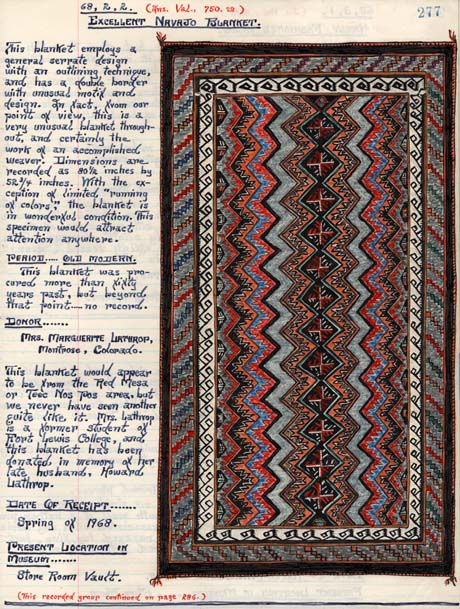 68, 2, 2. (Ans. Val., 750. 22.) 277
Excellent Navajo Blanket.
This blanket employs a
general serrate design
with an outlining technique,
and has a double border
with unusual motif and
design. In fact, from our
point of view, this is a
very unusual blanket through-
out, and certainly the
work of an accomplished
weaver. Dimensions are
recorded as 80½ inches by
52¾ inches. With the ex-
ception of limited "running
of colors," the blanket is
in wonderful condition. This
specimen would attract
attention anywhere.
Period.... Old Modern.
This blanket was pro-
cured more than sixty
years past, but beyond
that point.... no record.
Donor.......
Mrs. Marguerite Lathrop,
Montrose, Colorado.
This blanket would appear
to be from the Red Mesa
or Teec Nos Pos area, but
we never have seen another
quite like it. Mrs. Lathrop
is a former student of
Fort Lewis College, and
this blanket has been
donated, in memory of her
late husband, Howard
Lathrop.
Date Of Receipt......
Spring of 1968.
Present Location in
Museum.......
Store Room Vault.
(This recorded group continued on page 286.)